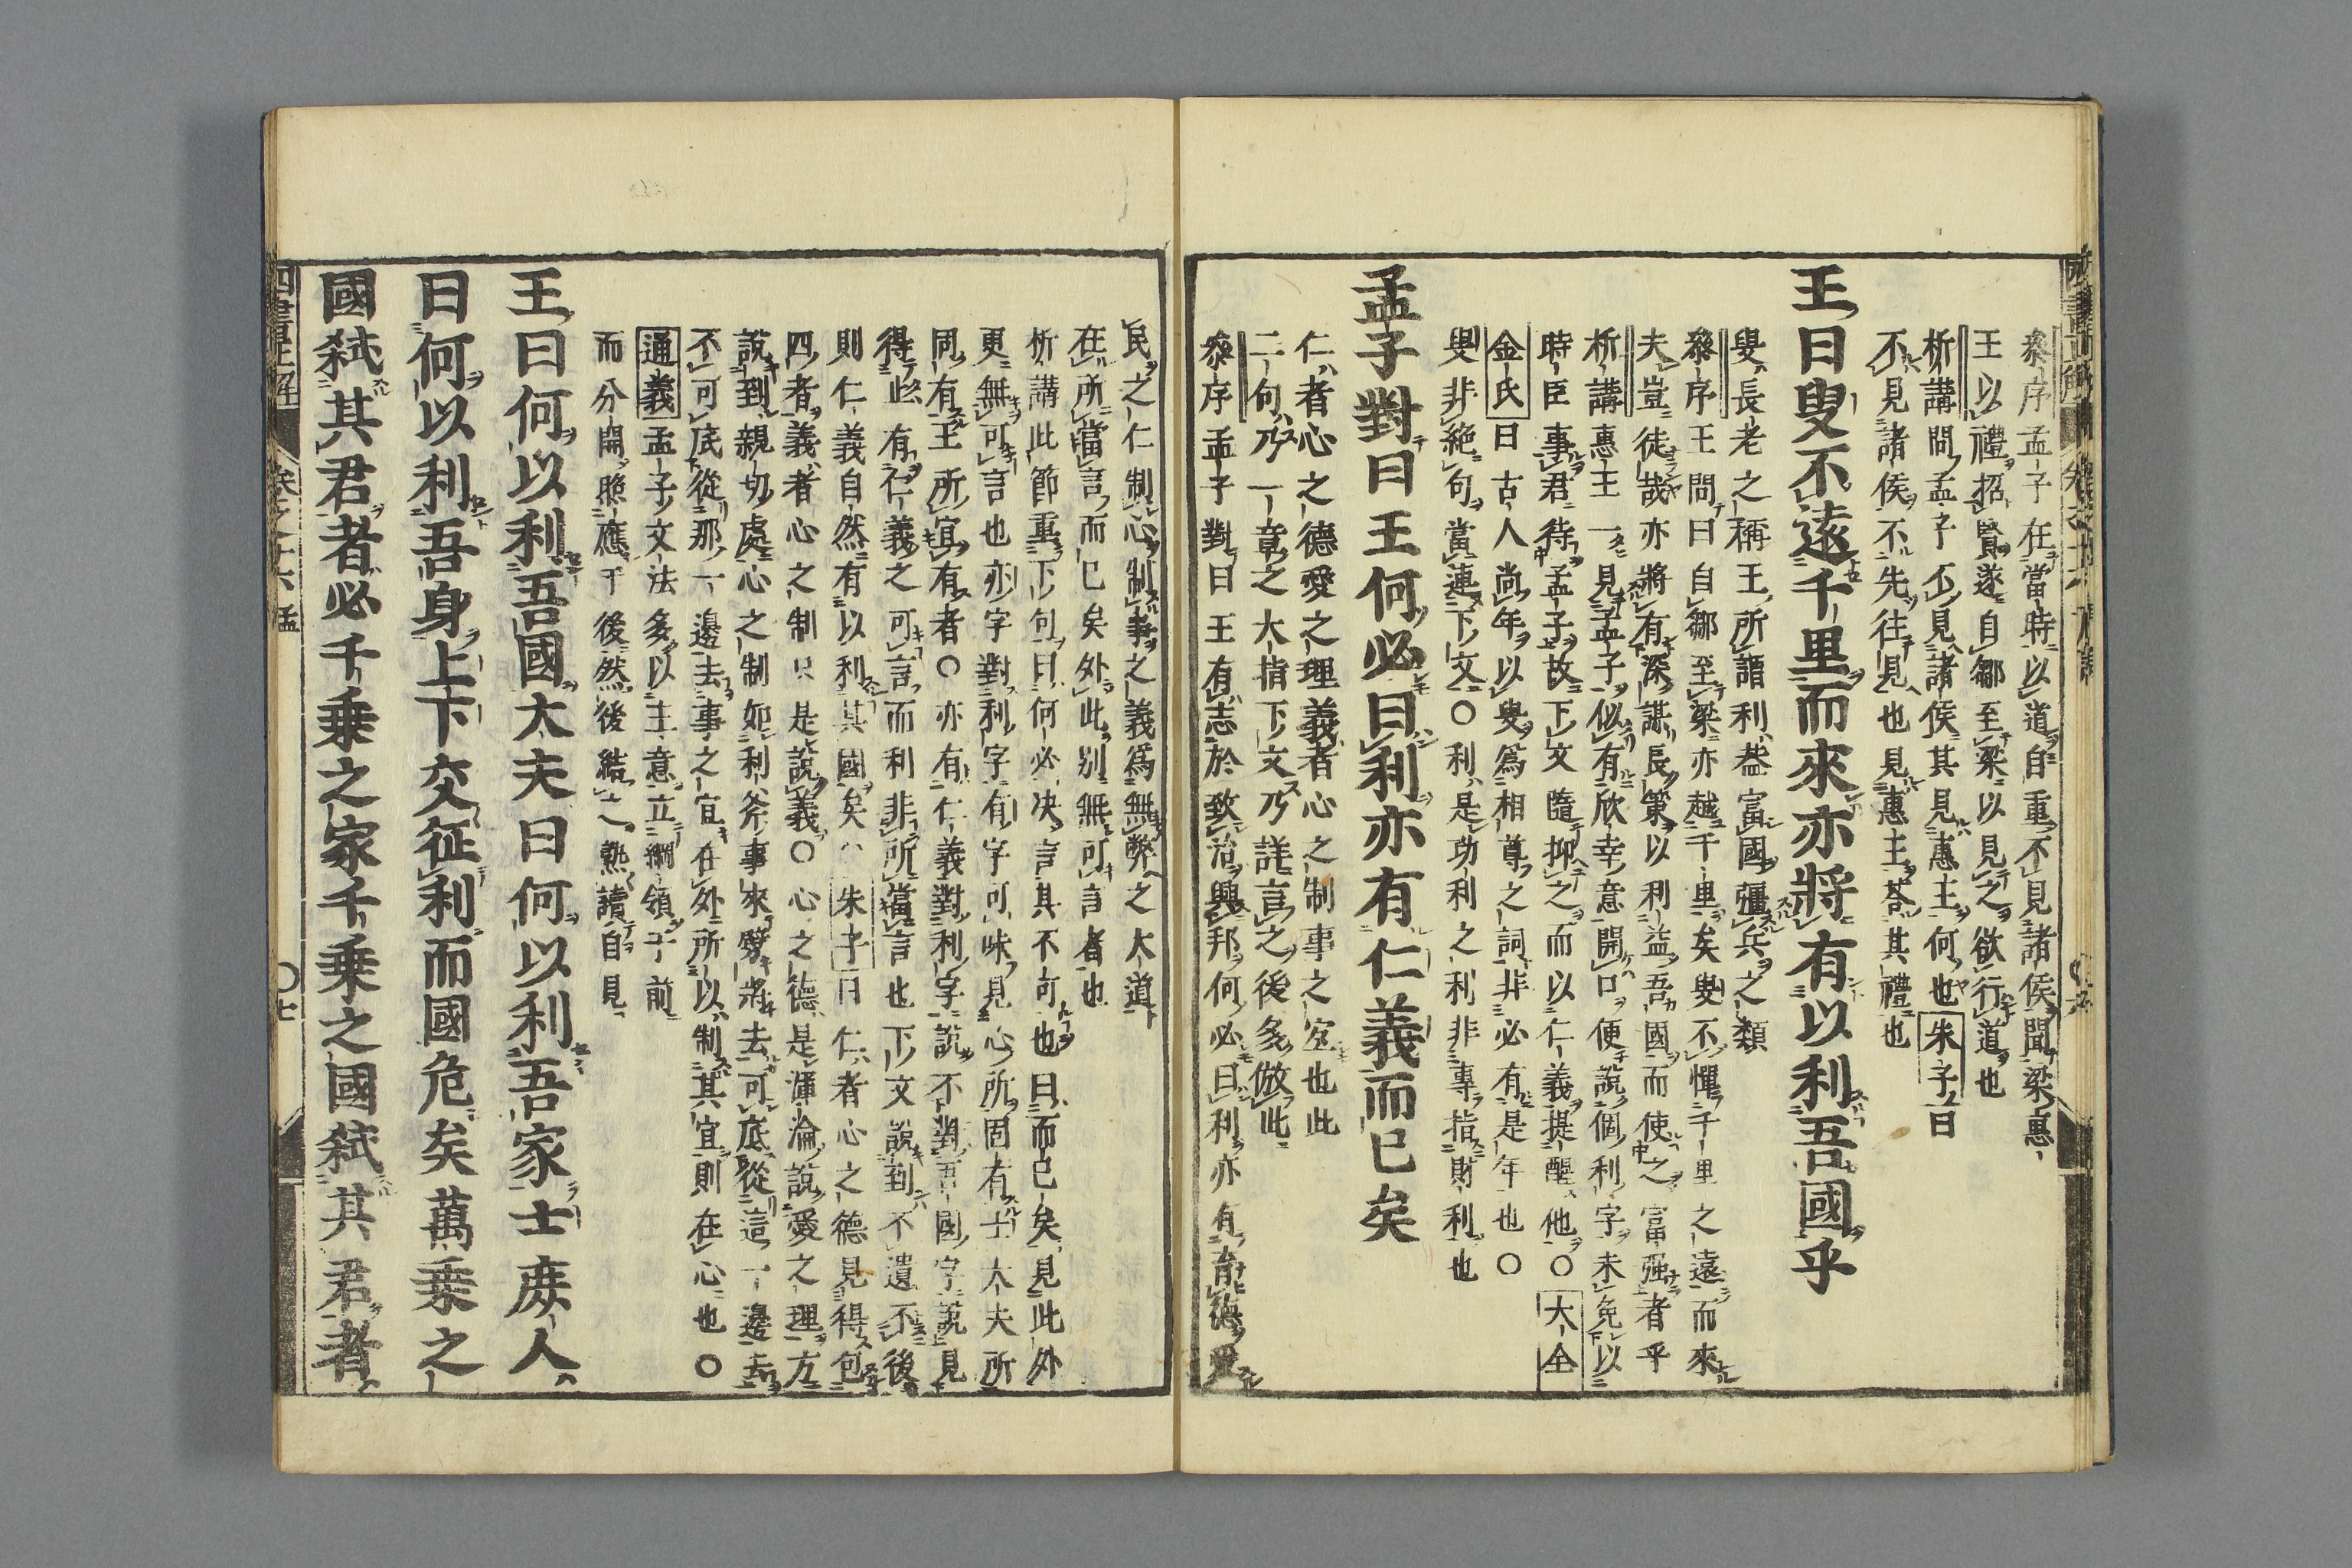 參序孟子在當時以道自重不見諸侯聞梁惠
王以禮招賢遂自鄒至梁以見之欲行道也
析講問孟子不見諸侯其見惠王何也朱子曰
不見諸侯不先往見也見惠王荅其禮也
王曰叟不遠千里而來亦將有以利吾國乎
叟長老之稱王所謂利葢富國彊兵之類
參序王問曰自鄒至梁亦越千里矣叟不憚千里之遠而來
夫豈徒哉亦將有深謀長策以利益吾國而使之富强者乎
析講惠王一見孟子似有欣幸意開口便說個利字未免以
時臣事君待孟子故下文隨抑之而以仁義提醒他〇大全
金氏曰古人尚年以叟爲相尊之詞非必有是年也〇
叟非絶句當連下文〇利是功利之利非專指財利也
孟子對曰王何必曰利亦有仁義而已矣
仁者心之德愛之理義者心之制事之宜也此
二句乃一章之大指下文乃詳言之後多倣此
參序孟子對曰王有志於致治興邦何必曰利亦有育德愛
民之仁制心制事之義爲無弊之大道
在所當言而已矣外此別無可言者也
析講此節重下句曰何必決言其不可也曰而已矣見此外
更無可言也亦字對利字有字可味見心所固有士大夫所
同有王所宜有者〇亦有仁義對利字說不對吾國字說見
得此有仁義之可言而利非所當言也下文說到不遺不後
則仁義自然有以利其國矣〇朱子曰仁者心之德見得包
四者義者心之制只是說義〇心之德是渾淪說愛之理方
說到親切處心之制如利斧事來劈將去可底從這一邊去
不可底從那一邊去事之宜在外所以制其宜則在心也〇
通義孟子文法多以主意立綱領于前
而分開照應于後然後結之熟讀自見
王曰何以利吾國大夫曰何以利吾家士庶人
曰何以利吾身上下交征利而國危矣萬乗之
國弑其君者必千乗之家千乗之國弑其君者
四書正解 卷之十六 孟 〇七